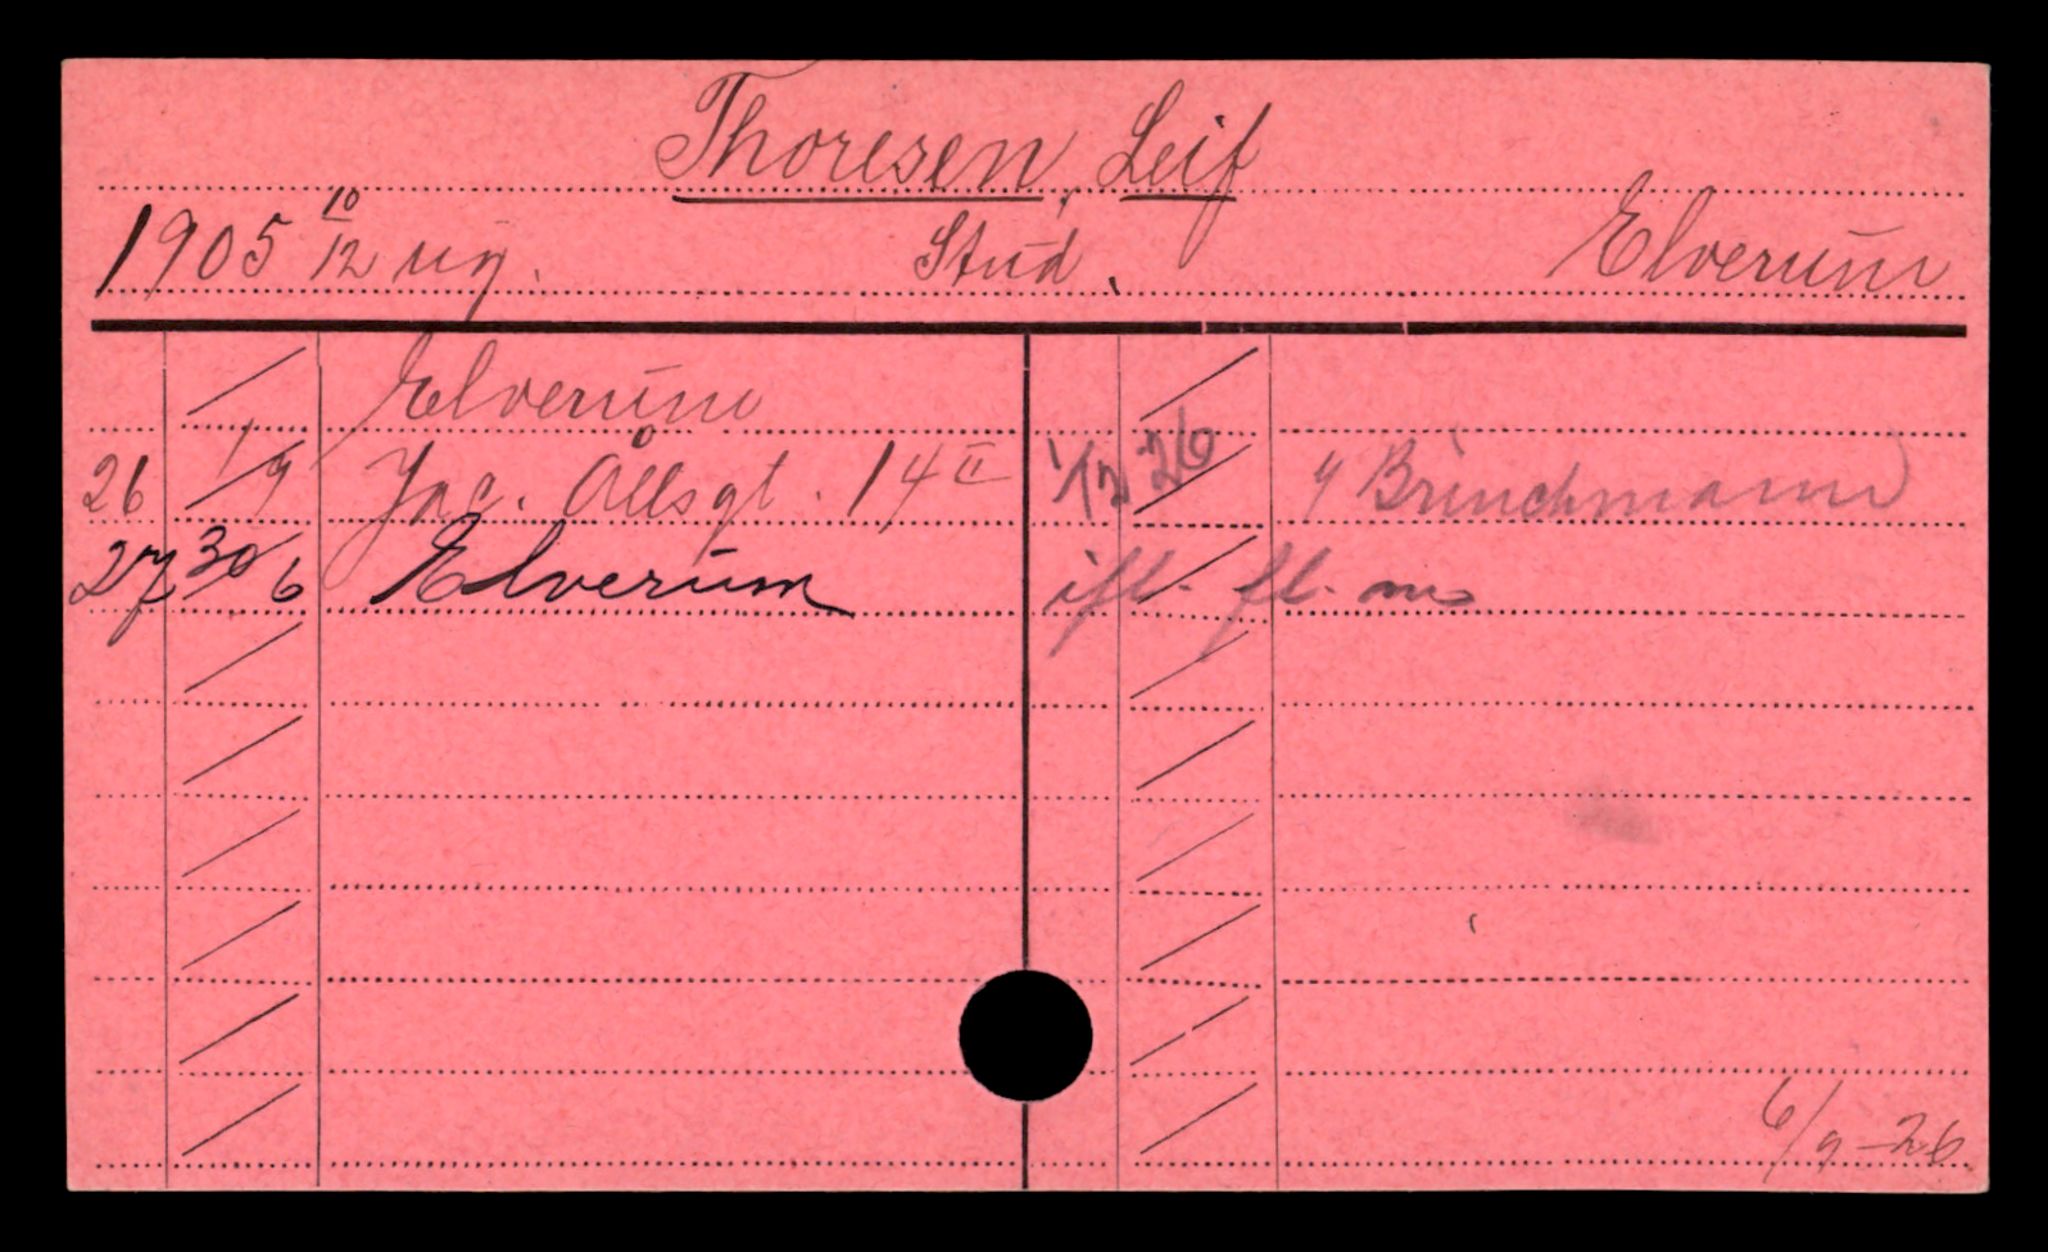 Thoresen, Leif
1905 10/12 ug. Stud. Elverum
Elverum
26 1/9 Jac. Ållsgt. 14 II 1/12 26 Brinchmann
27 30/6 Elverum ifl. fl. m
6/9-26